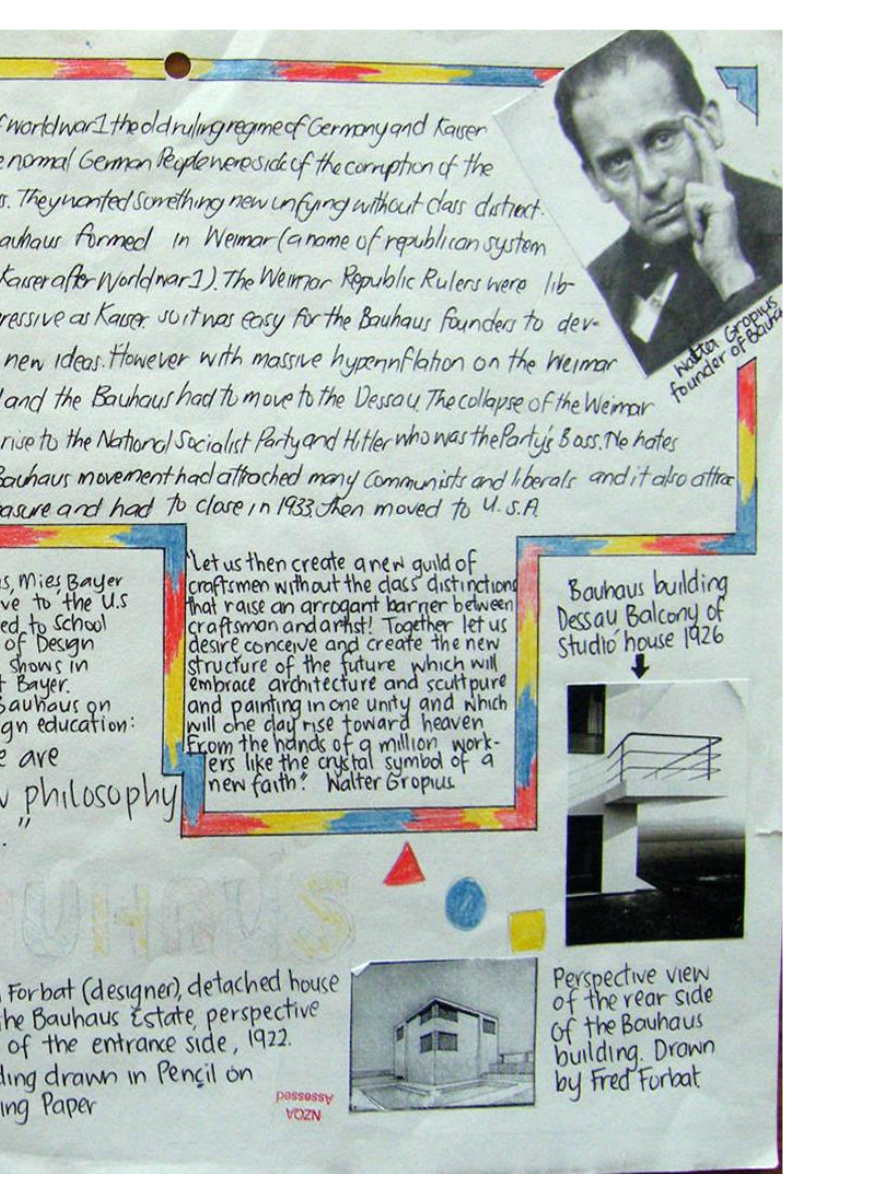 f world war 1 the old ruling regime of Germony and Kaiser
e normal German People were side of the corruption of the
s. They wanted Something new unfying without class distinct.
auhaus formed in Weimar (a name of republican system
Kaiser after World war 1). The Weimar Republic Rulers were lib-
ressive as Kaiser. so it was easy for the Bauhaus founders to dev-
new ideas. However with massive hyperinflation on the Weimar
l and the Bauhaus had to move to the Dessau. The collapse of the Weimar
rise to the National Socialist Party and Hitler who was the Party's Boss. He hates
Bauhaus movement had attrached many Communists and liberals and it also attrac
easure and had to close in 1933. Then moved to U.S.A
Walter Gropius
founder of Bauha
s, Mies, Bayer
ve to the U.S
ed to School
of Design
shows in
t Bayer.
Bauhaus on
gn education:
e are
w philosophy
"
.
"Let us then create a new guild of
craftsmen without the class distinctions
that raise an arrogant barrier between
craftsman and artist! Together let us
desire conceive and create the new
structure of the future which will
embrace architecture and scultpure
and painting in one unity and which
will one day rise toward heaven
from the hands of a million work-
ers like the crystal symbol of a
new faith." Walter Gropius
Bauhaus building
Dessau Balcony of
Studio house 1926
UHAUS
Forbat (designer), detached house
he Bauhaus Estate, perspective
of the entrance side, 1922.
ding drawn in Pencil on
ing Paper
NZQA
Assessed
Perspective view
of the rear side
of the Bauhaus
building. Drawn
by Fred Forbat